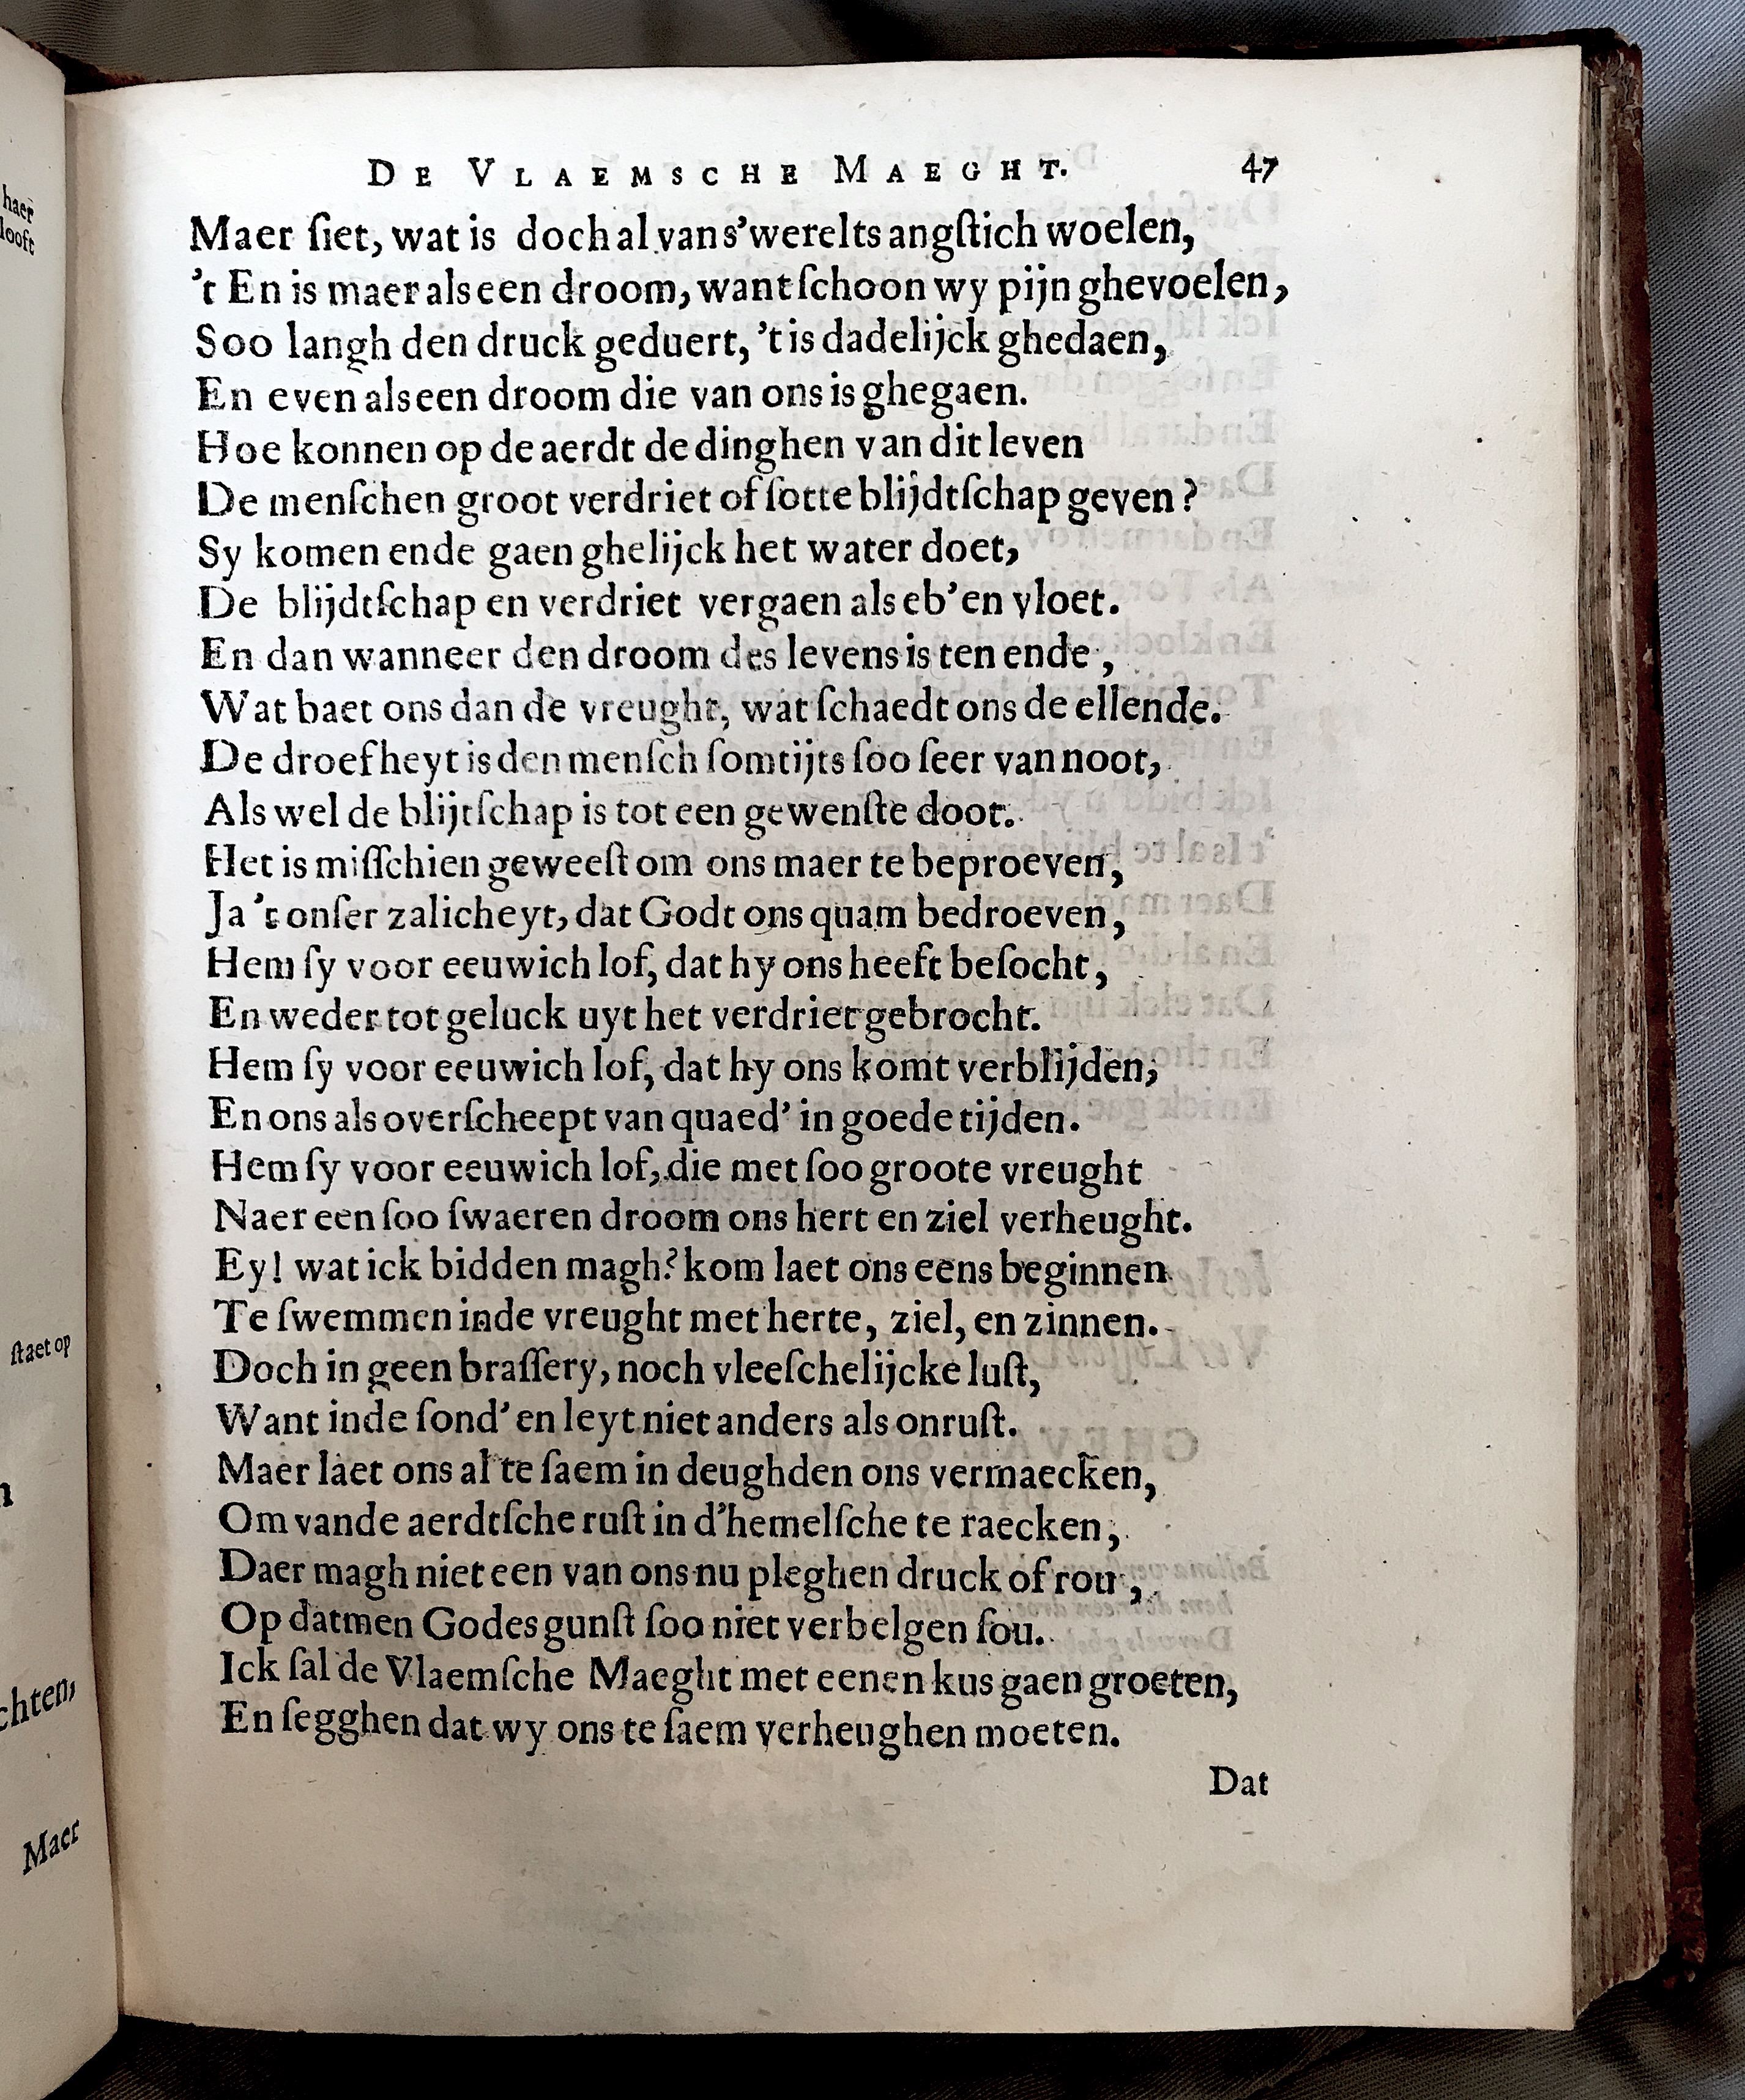 haer
looft
staet op
n
chten,
Maer
DE VLAEMSCHE MAEGHT. 47
Maer ſiet, wat is doch al van s'werelts angſtich woelen,
't En is maer als een droom, want ſchoon wy pijn ghevoelen,
Soo langh den druck geduert, 't is dadelijck ghedaen,
En even als een droom die van ons is ghegaen.
Hoe konnen op de aerdt de dinghen van dit leven
De menſchen groot verdriet of ſotte blijdtſchap geven?
Sy komen ende gaen ghelijck het water doet,
De blijdtſchap en verdriet vergaen als eb' en vloet.
En dan wanneer den droom des levens is ten ende,
Wat baet ons dan de vreught, wat ſchaedt ons de ellende.
De droefheyt is den menſch ſomtijts ſoo ſeer van noot,
Als wel de blijtſchap is tot een gewenſte doot.
Het is miſſchien geweeſt om ons maer te beproeven,
Ja 't onſer zalicheyt, dat Godt ons quam bedroeven,
Hem ſy voor eeuwich lof, dat hy ons heeft beſocht,
En weder tot geluck uyt het verdriet gebrocht.
Hem ſy voor eeuwich lof, dat hy ons komt verblijden,
En ons als overſcheept van quaed' in goede tijden.
Hem ſy voor eeuwich lof, die met ſoo groote vreught
Naer een ſoo ſwaeren droom ons hert en ziel verheught.
Ey! wat ick bidden magh? kom laet ons eens beginnen
Te ſwemmen inde vreught met herte, ziel, en zinnen.
Doch in geen braſſery, noch vleeſchelijcke luſt,
Want inde ſond' en leyt niet anders als onruſt.
Maer laet ons al te ſaem in deughden ons vermaecken,
Om vande aerdtſche ruſt in d'hemelſche te raecken,
Daer magh niet een van ons nu pleghen druck of rou,
Op datmen Godes gunſt ſoo niet verbelgen ſou.
Ick ſal de Vlaemſche Maeght met eenen kus gaen groeten,
En ſegghen dat wy ons te ſaem verheughen moeten.
Dat